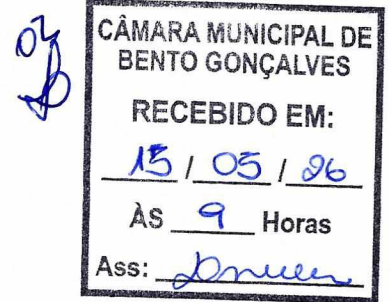 02
CÂMARA MUNICIPAL DE
BENTO GONÇALVES
RECEBIDO EM:
15 / 05 / 26
ÀS 9 Horas
Ass: